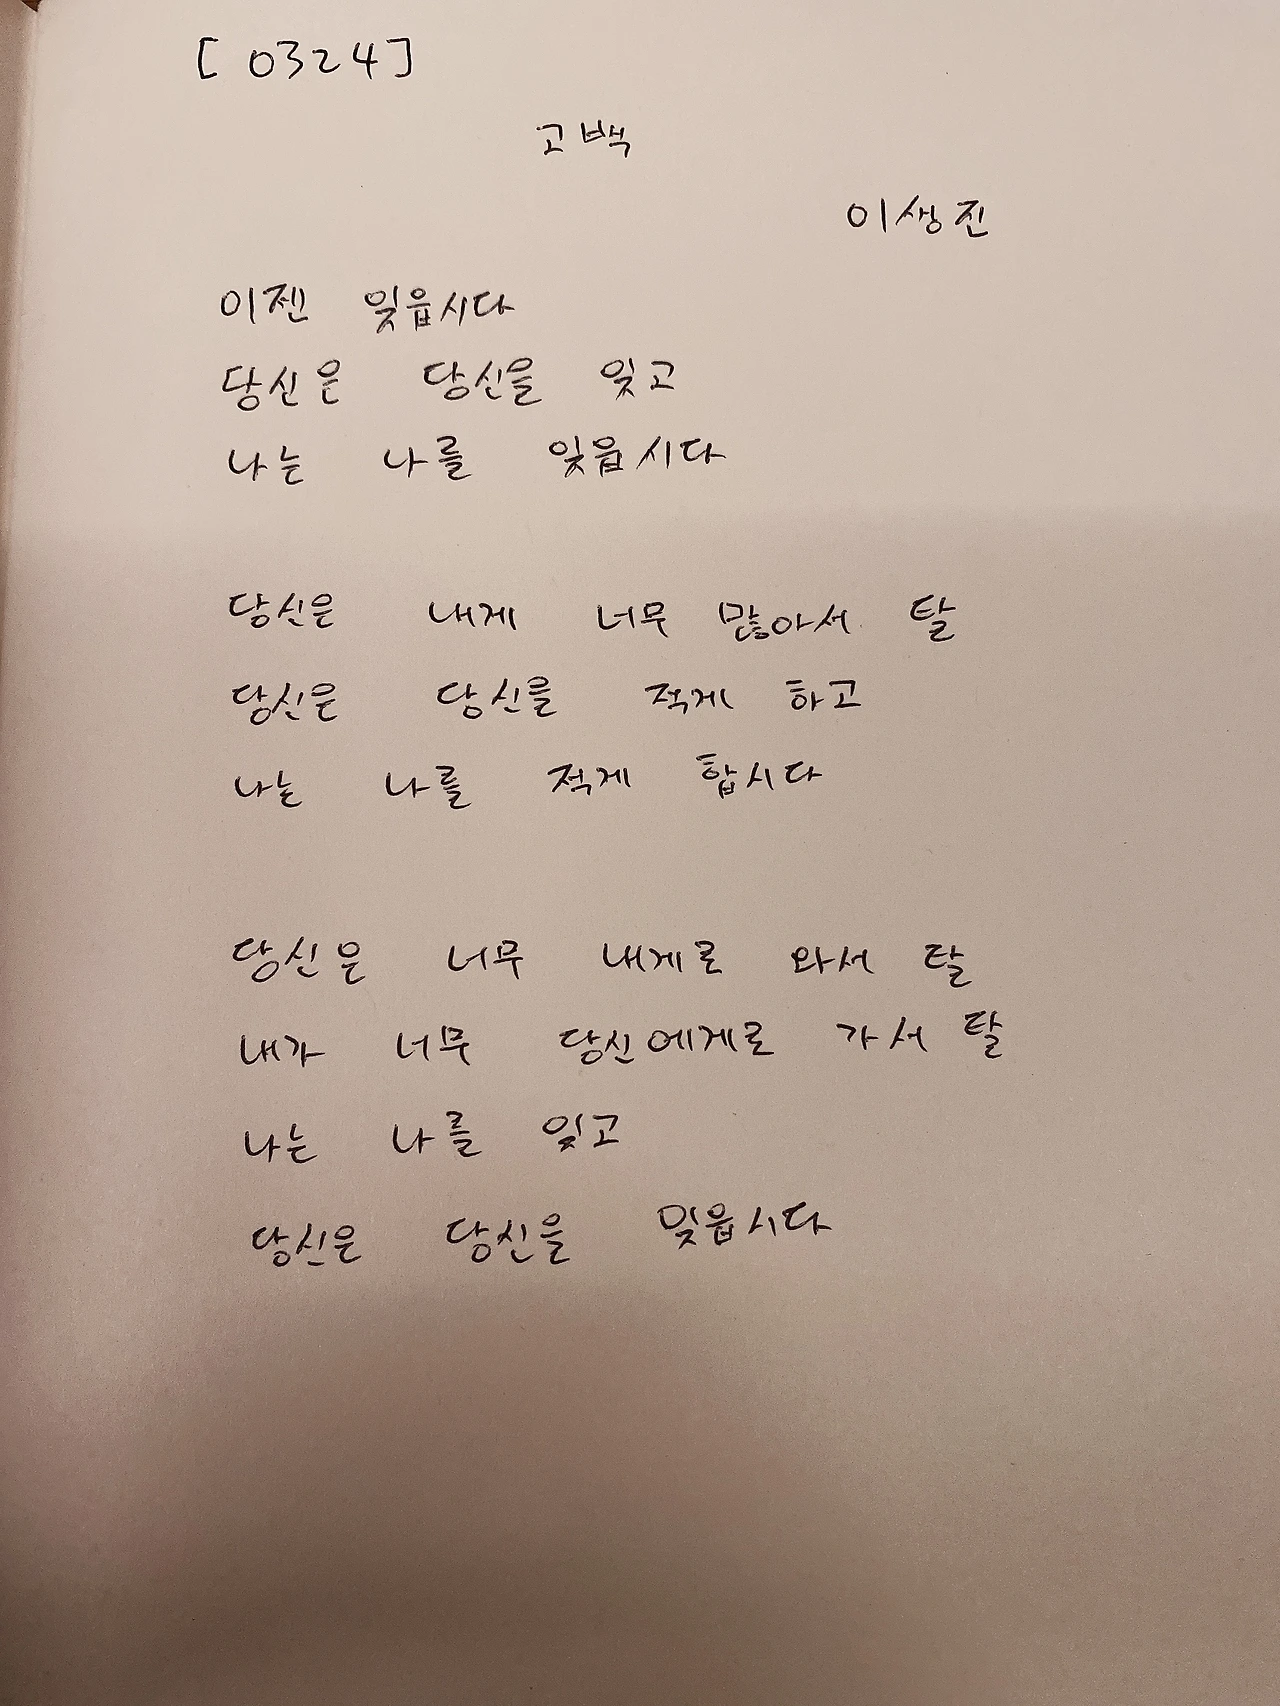 [0324]
고백
이생진
이젠 잊읍시다
당신은 당신을 잊고
나는 나를 잊읍시다
당신은 내게 너무 많아서 탈
당신은 당신을 적게 하고
나는 나를 적게 합시다
당신은 너무 내게로 와서 탈
내가 너무 당신에게로 가서 탈
나는 나를 잊고
당신은 당신을 잊읍시다